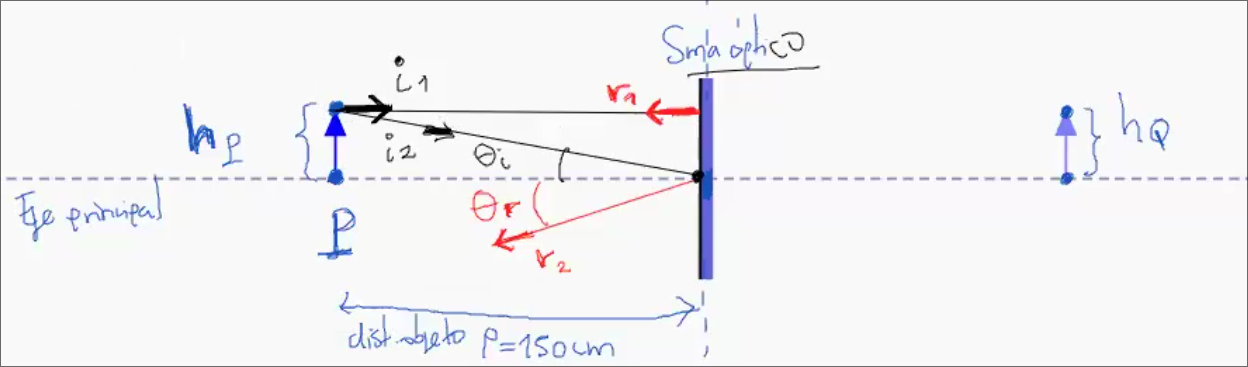 Sma óptico
i1
r1
hP
i2
θi
hQ
Eje principal
θr
P
r2
dist. objeto P=150cm